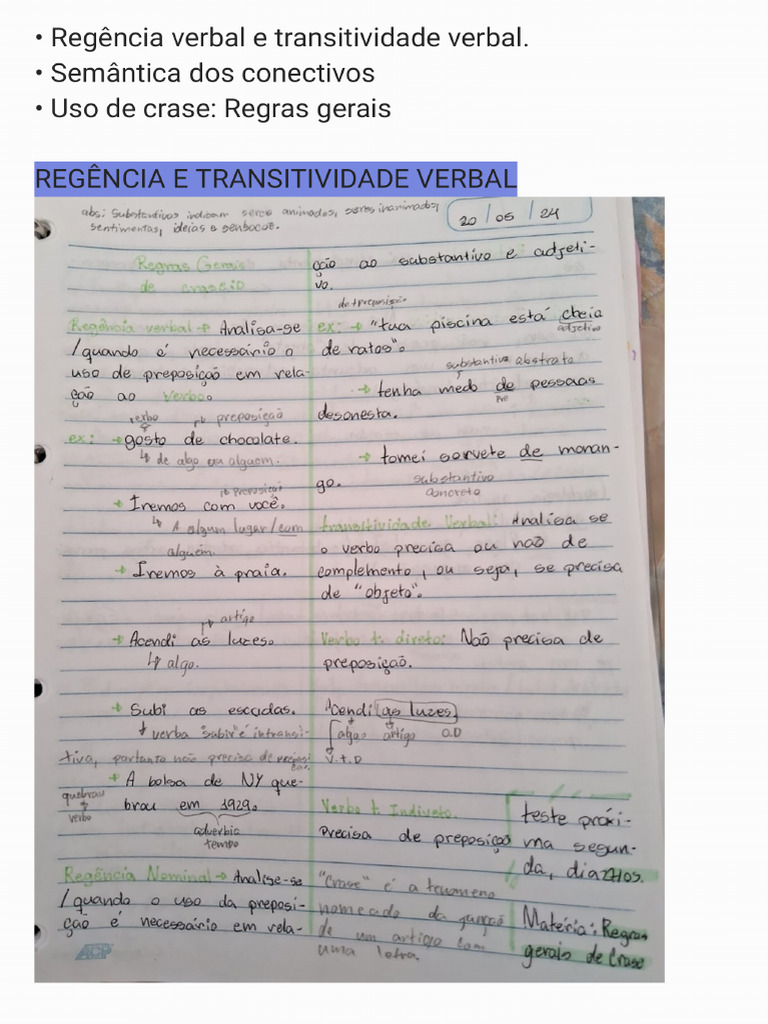 • Regência verbal e transitividade verbal.
• Semântica dos conectivos
• Uso de crase: Regras gerais
REGÊNCIA E TRANSITIVIDADE VERBAL
obs: Substantivos indicam seres animados, seres inanimados,
sentimentos, ideias e
20 / 05 / 24
Regras Gerais
de
Regência verbal → Analisa-se
/quando é necessário o
uso de preposição em rela-
ção ao verbo.
verbo preposição
ex: → gosto de chocolate.
↳ de algo ou alguém.
preposição
→ Iremos com você.
↳ A algum lugar/com
alguém.
→ Iremos à praia.
artigo
→ Acendi as luzes.
↳ algo.
→ Subi as escadas.
↓ verbo "subir" é intransi-
tivo, portanto não precisa de preposi
ção.
→ A bolsa de NY que-
brou em 1929.
quebrou
verbo
adverbio
tempo
Regência Nominal → Analise-se
/quando o uso da preposi-
ção é necessário em rela-
ACP
ção ao substantivo e adjeti-
vo.
de+preposição
ex: → "tua piscina está cheia
adjetivo
de ratos".
substantivo abstrato
→ tenha medo de pessoas
Pre
desonesta.
→ tomei sorvete de moran-
go.
substantivo
concreto
transitividade Verbal: Analisa se
o verbo precisa ou não de
complemento, ou seja, se precisa
de "objeto".
Verbo t. direto: Não precisa de
preposição.
Acendi as luzes
algo artigo O.D
V.T.D
Verbo t. Indireto.
Precisa de preposição
"Crase" é a fenomeno
nomeado da junção
de um artigo com
uma letra.
teste próxi-
ma segun-
da, dia
Matéria: Regras
gerais de Crase